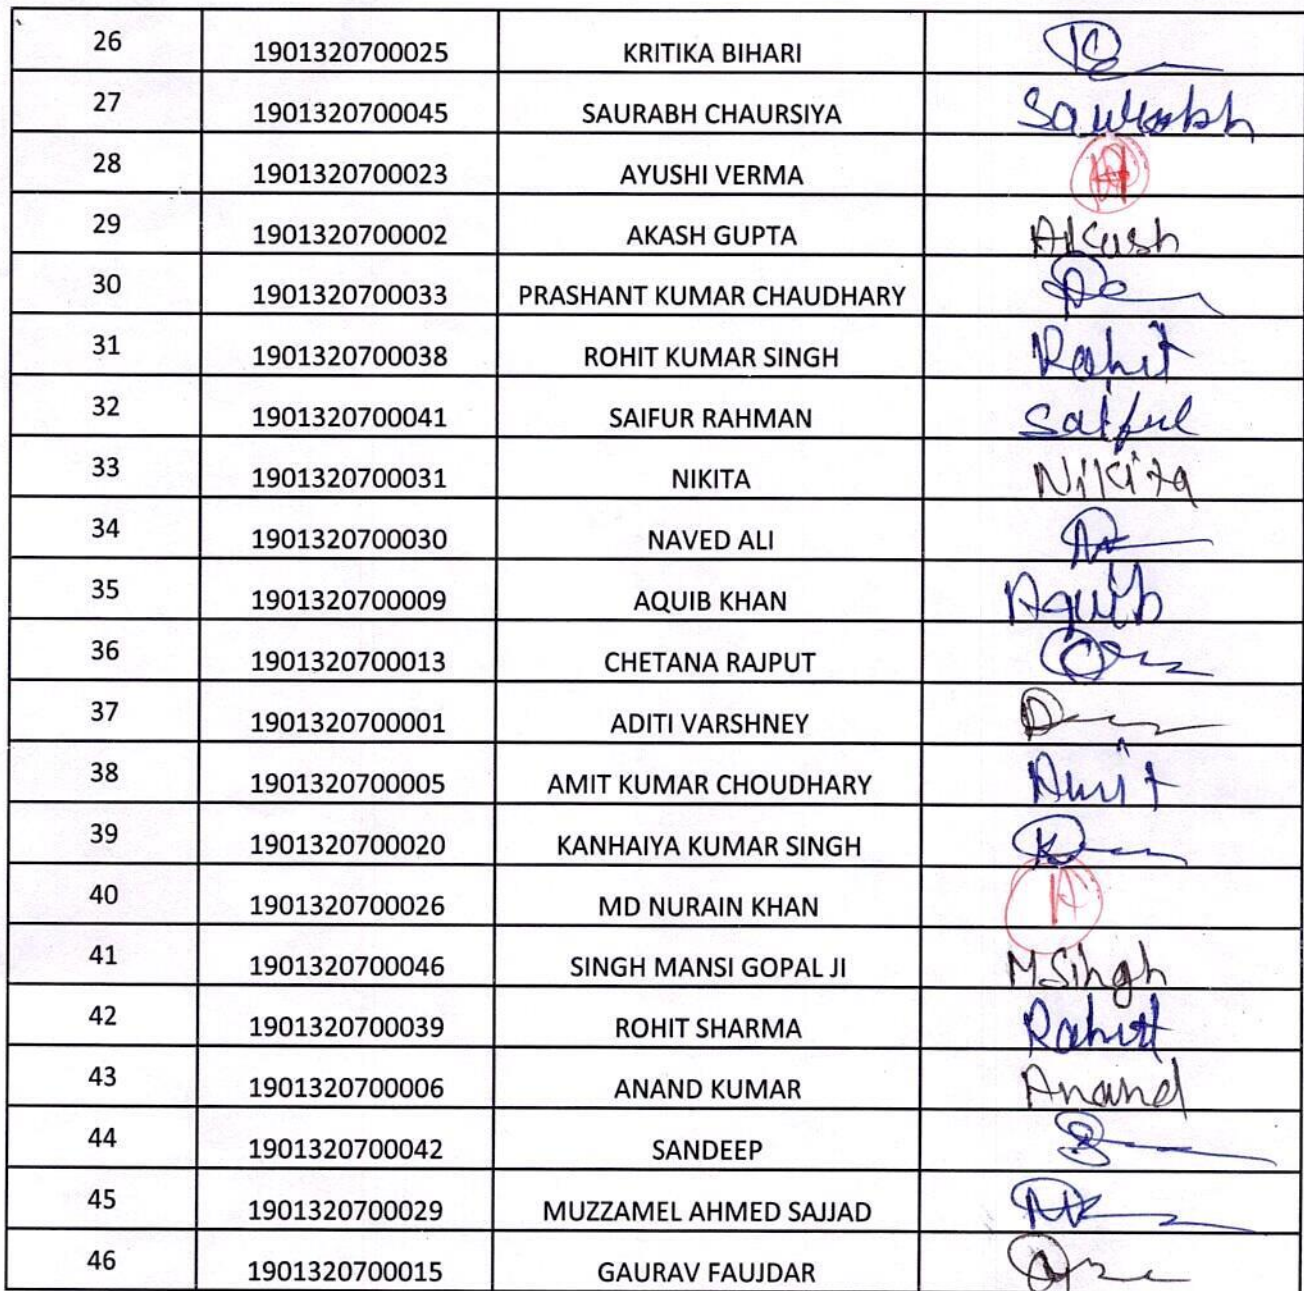 26 1901320700025 KRITIKA BIHARI
27 1901320700045 SAURABH CHAURSIYA Saurabh
28 1901320700023 AYUSHI VERMA A
29 1901320700002 AKASH GUPTA Akash
30 1901320700033 PRASHANT KUMAR CHAUDHARY
31 1901320700038 ROHIT KUMAR SINGH Rohit
32 1901320700041 SAIFUR RAHMAN Saiful
33 1901320700031 NIKITA Nikita
34 1901320700030 NAVED ALI
35 1901320700009 AQUIB KHAN Aquib
36 1901320700013 CHETANA RAJPUT
37 1901320700001 ADITI VARSHNEY
38 1901320700005 AMIT KUMAR CHOUDHARY Amit
39 1901320700020 KANHAIYA KUMAR SINGH
40 1901320700026 MD NURAIN KHAN A
41 1901320700046 SINGH MANSI GOPAL JI MSingh
42 1901320700039 ROHIT SHARMA Rohit
43 1901320700006 ANAND KUMAR Anand
44 1901320700042 SANDEEP
45 1901320700029 MUZZAMEL AHMED SAJJAD
46 1901320700015 GAURAV FAUJDAR